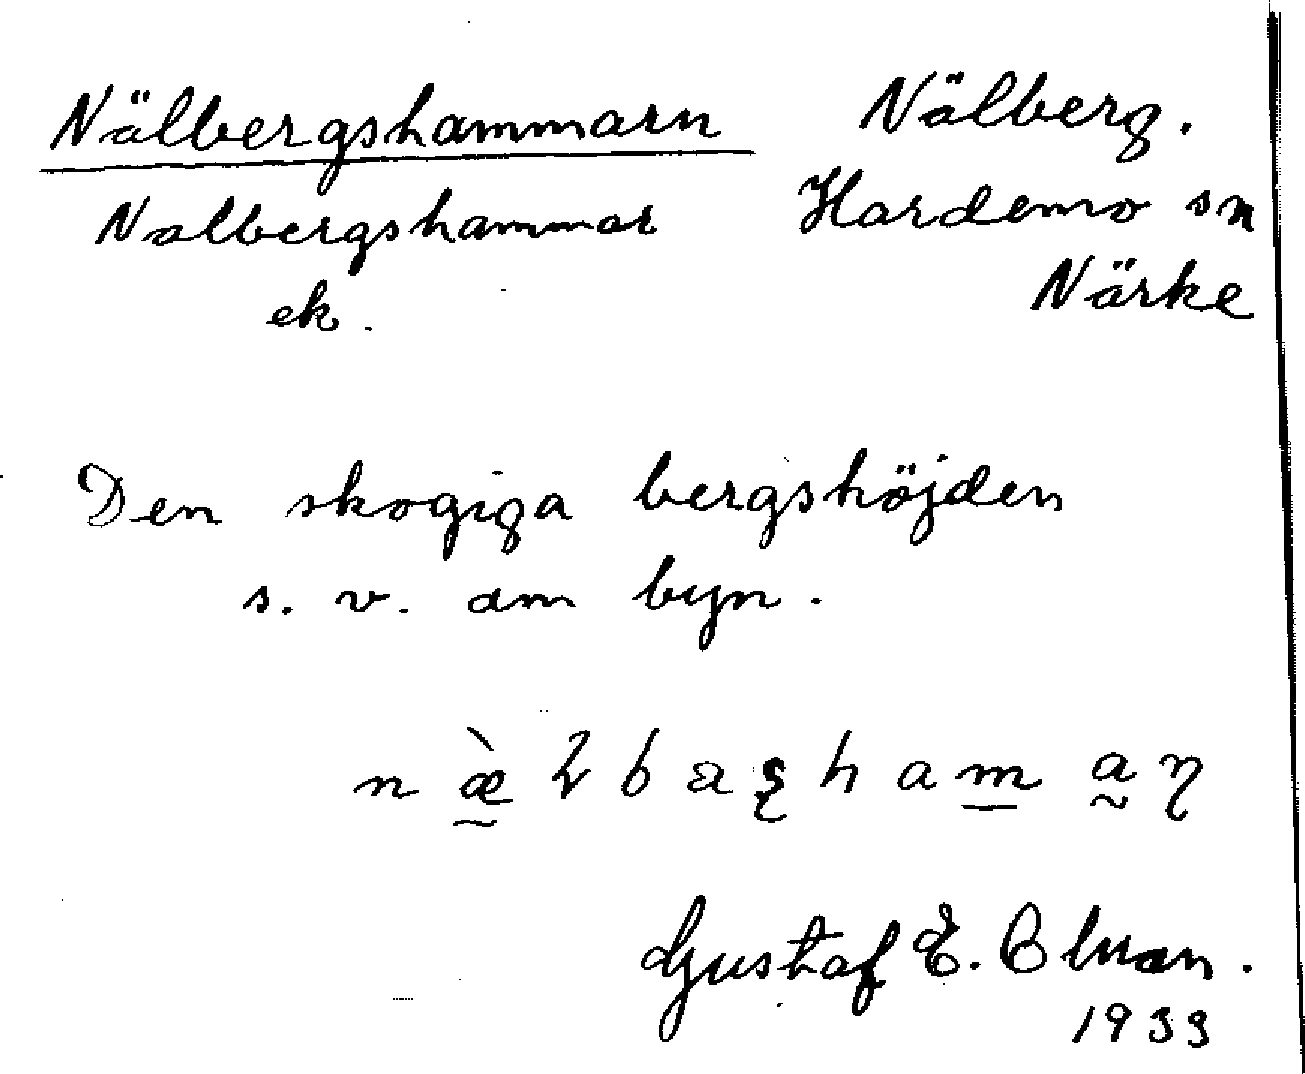 Nälbergshammarn
Nalbergshammar
ek.
Nälberg.
Hardemo sn
Närke
Den skogiga bergshöjden
s. v. om byn.
Gustaf E.
1933